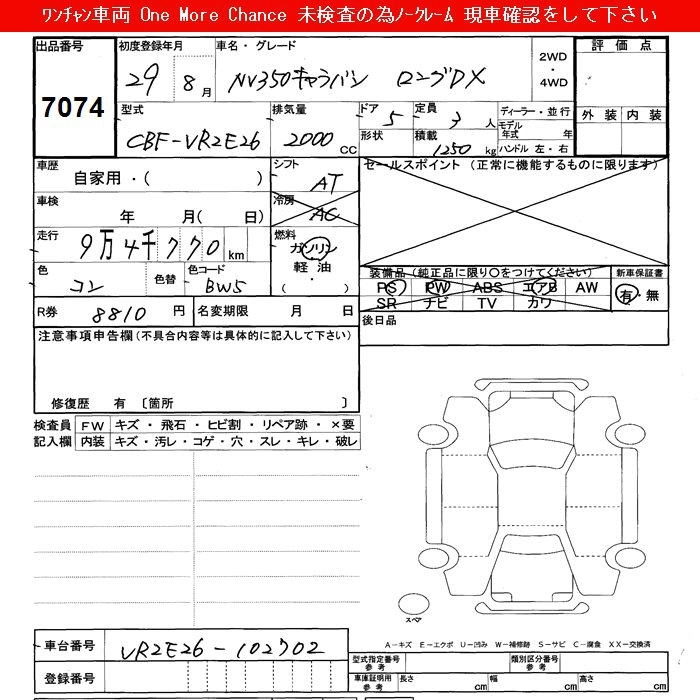 ワンチャン車両 One More Chance 未検査の為ノークレーム 現車確認をして下さい
出品番号 初度登録年月 車名・グレード 2WD ・ 4WD 評価点
7074 29 8月 NV350キャラバン ロングDX
外装 内装
型式 排気量 ドア 5 定員 3人 ディーラー・並行
CBF-VR2E26 2000 CC 形状 積載 1250 kg モデル年式 年
ハンドル 左・右
車歴 自家用・( ) シフト AT セールスポイント (正常に機能するものに限ります)
車検 年 月( 日) 冷房 AC
走行 9万4千770 km 燃料 ガソリン
軽油
・( )
色 コン 色替 色コード BW5
装備品 (純正品に限り○をつけてください) 新車保証書
PS PW ABS エアB AW 有・無
SR ナビ TV カワ
R券 8810 円 名変期限 月 日 後日品
注意事項申告欄(不具合内容等は具体的に記入して下さい)
修復歴 有 〔箇所 〕
検査員 FW キズ・飛石・ヒビ割・リペア跡・×要
記入欄 内装 キズ・汚レ・コゲ・穴・スレ・キレ・破レ
スペア
A-キズ E-エクボ U-凹み W-補修跡 S-サビ C-腐食 XX-交換済
車台番号 VR2E26-102702
型式指定番号 参考 類別区分番号 参考
登録番号
車庫証明用 参考 長さ cm 幅 cm 高さ cm